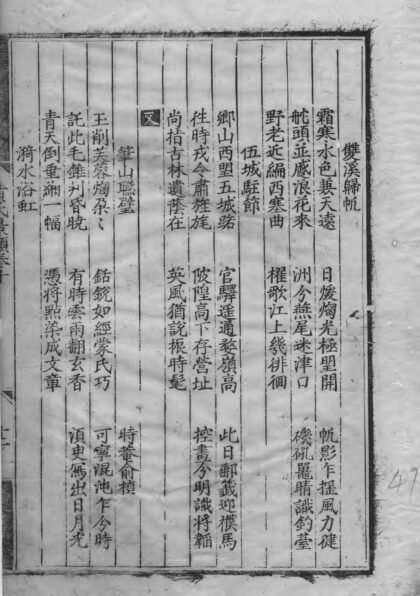 雙溪歸帆
霜寒水色兼天遠 日煖烟光極望開 帆影乍搖風力健
舵頭並感浪花來 洲分燕尾珠津口 磯砥鼉睛識釣臺
野老近編西塞曲 櫂歌江上幾徘徊
伍城駐節
鄉山西望五城砦 官驛遥通婺嶺高 此日郵籤迎僕馬
徃時戎令肅旌旄 陂隍高下存營址 控畫分明識將韜
尚指古林遺蔭在 英風猶說振時髦
又 時菴俞楨
筆山聮璧
玉削芙蓉烟朶〻 銛銳如經蒙氏巧 可寧混沌乍分時
託此毛錐判昏曉 有時雲雨翻玄香 須臾寫出日月光
青天倒垂緗一幅 憑將點染成文章
漪水浴虹
49